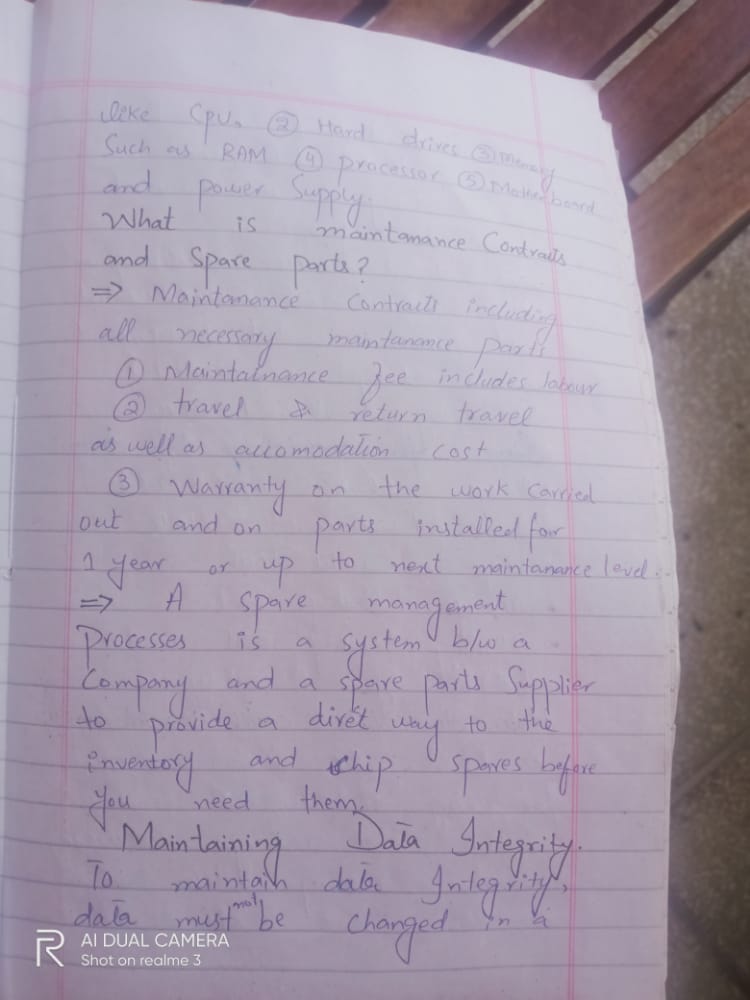 like CPU. ② Hard drives ③ Memory
Such as RAM ④ processor ⑤ Motherboard
and power Supply.
What is maintanance Contracts
and Spare parts?
⇒ Maintanance Contracts including
all necessary maintanance parts
① Maintainance fee includes labour
② travel & return travel
as well as accomodation cost
③ Warranty on the work carried
out and on parts installed for
1 year or up to next maintanance level.
⇒ A spare management
Processes is a system b/w a
Company and a spare parts Supplier
to provide a diret way to the
inventory and ship spares before
you need them.
Maintaining Data Integrity.
To maintain data Integrity,
data must not be changed in a
R AI DUAL CAMERA
Shot on realme 3